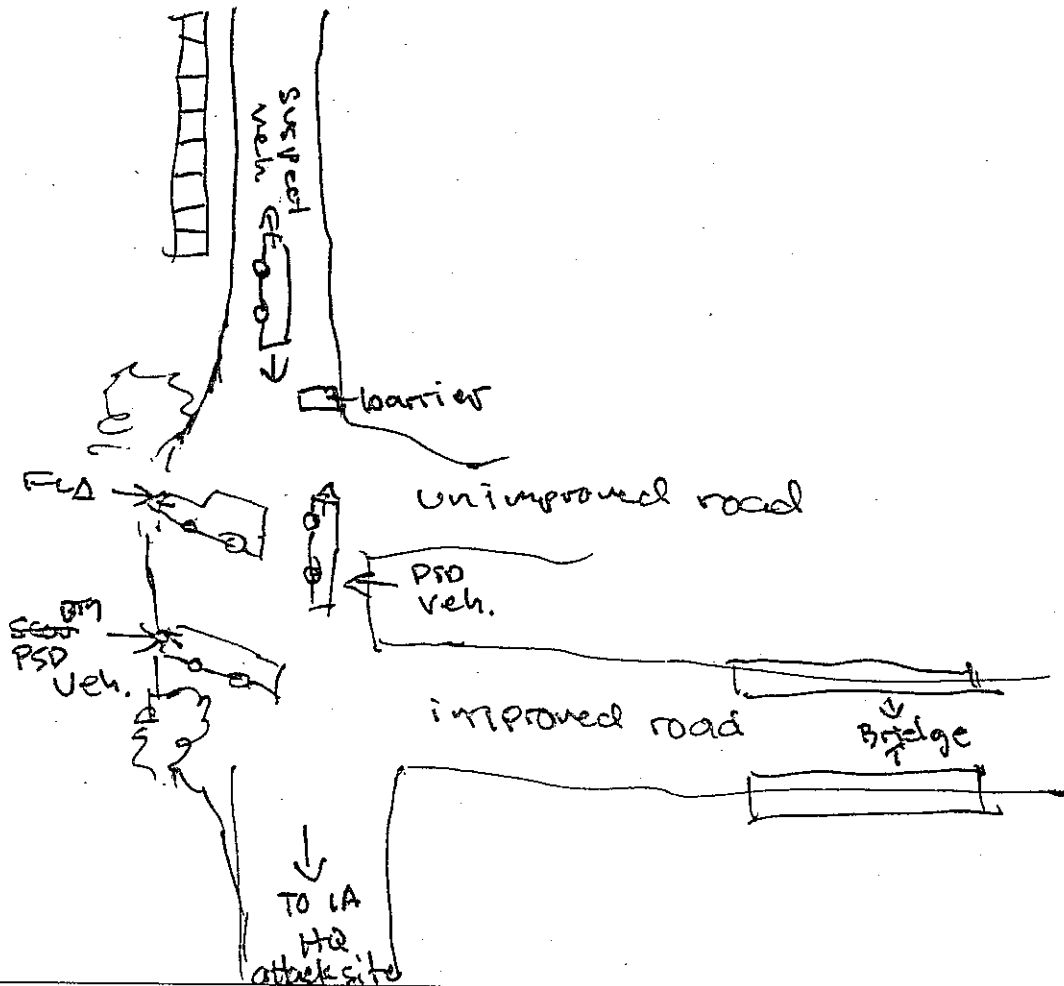 suspect
veh
barrier
unimproved road
PSD
veh.
BTM
PSD
veh.
improved road
Bridge
TO IA
HQ
attack site